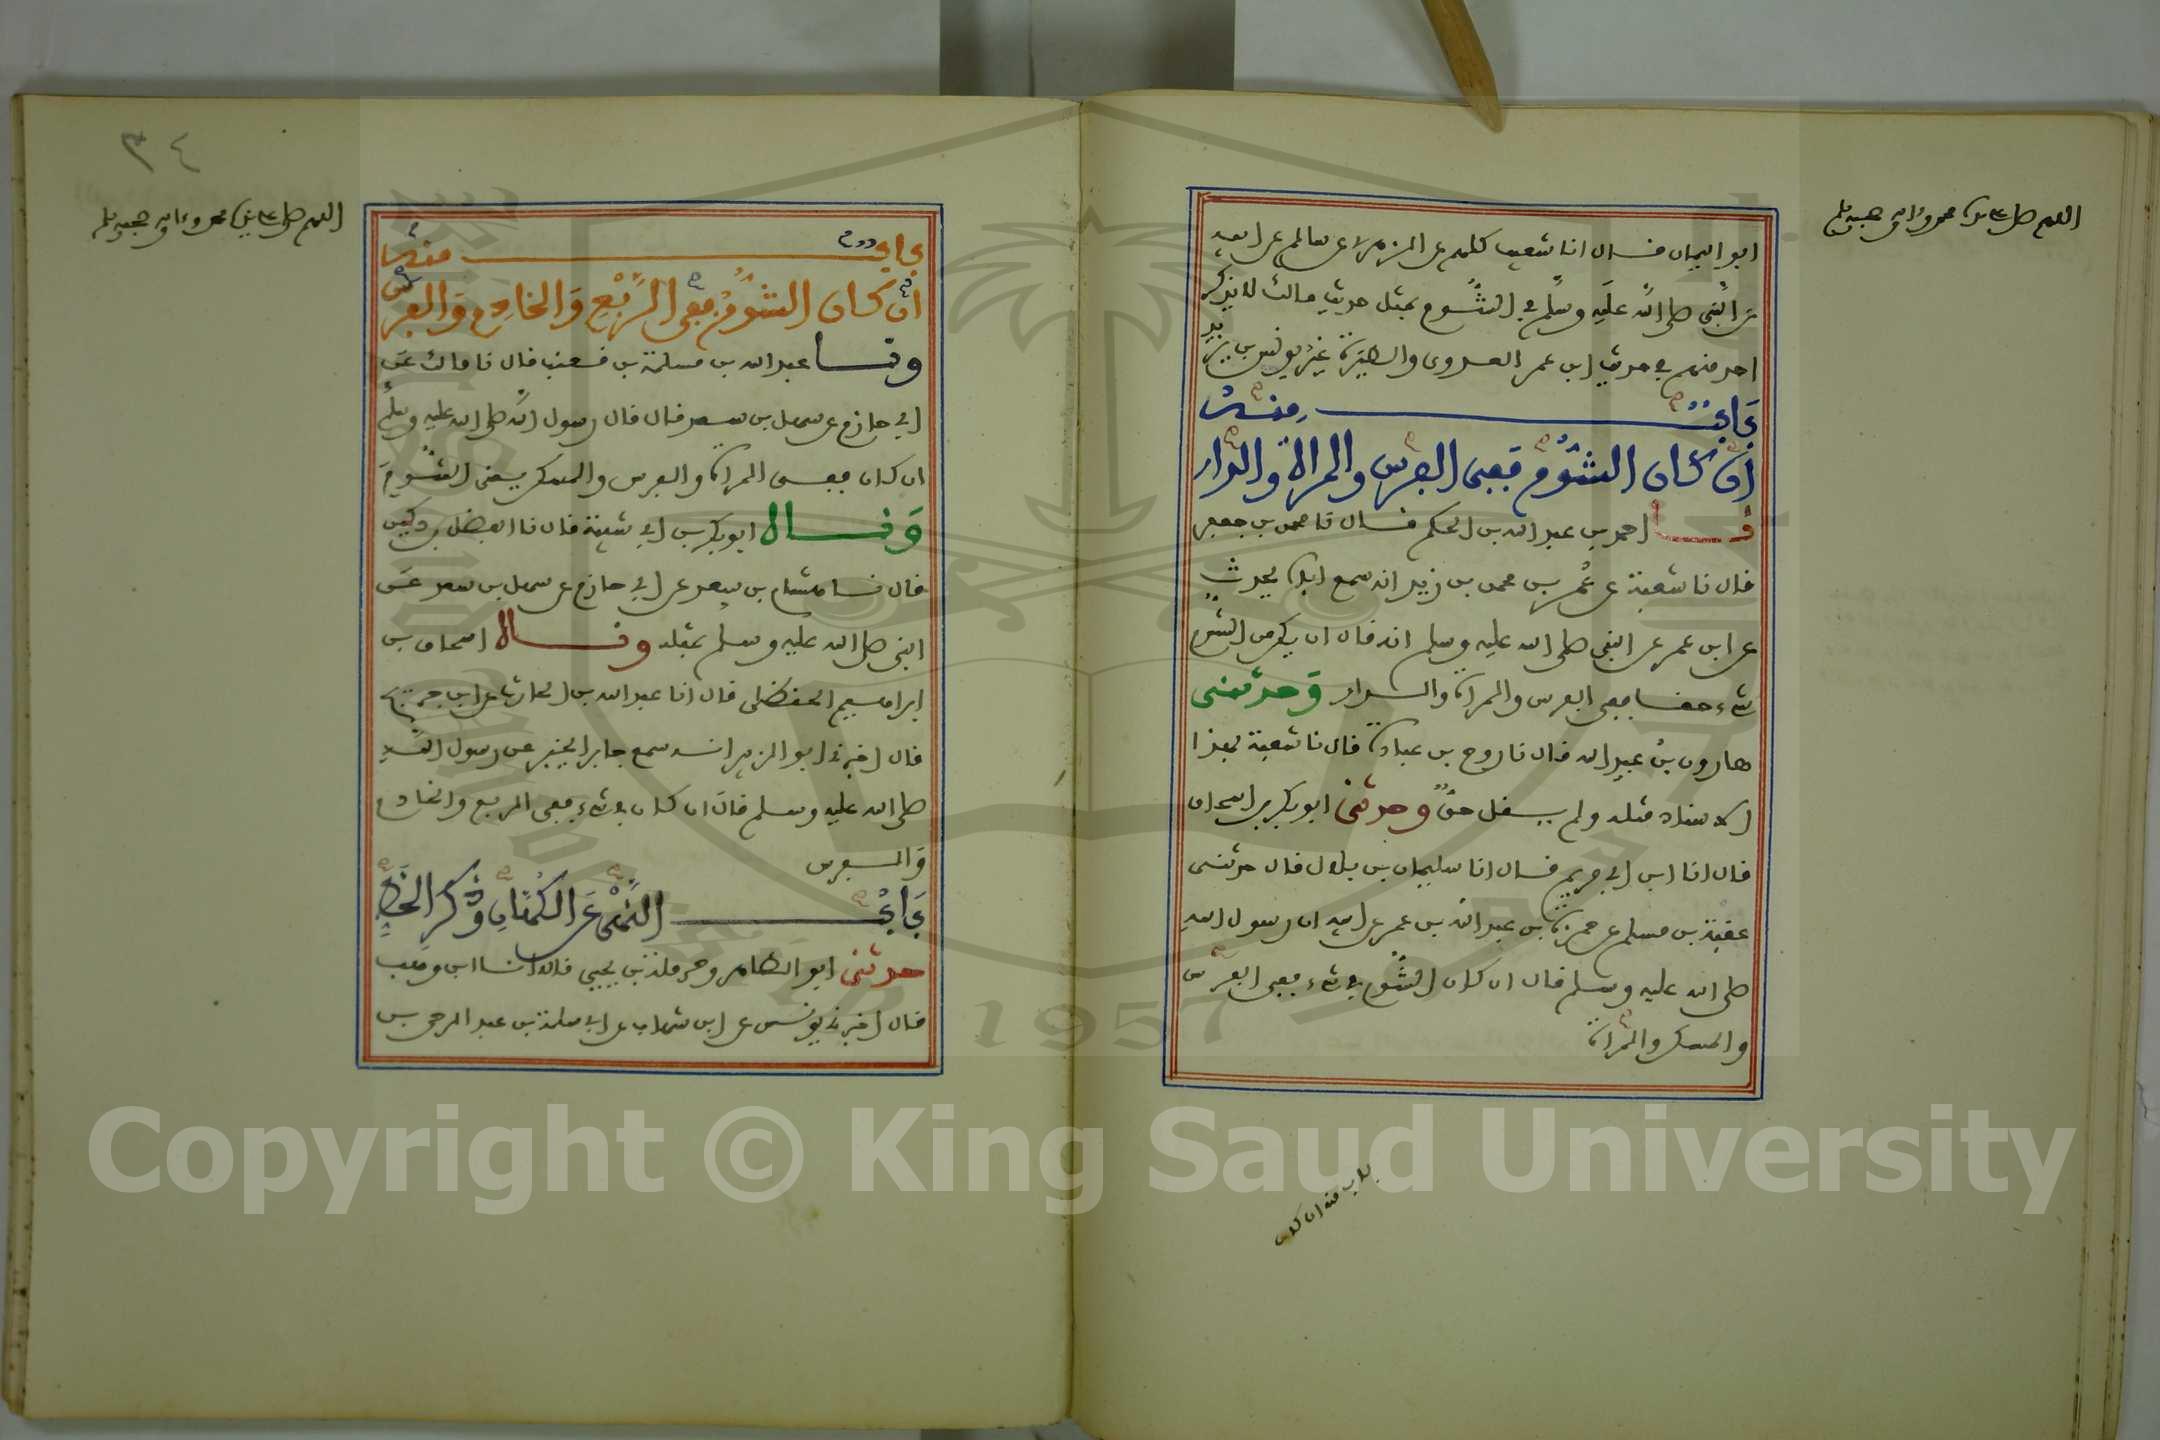 اللهم صل على سيدنا محمد وءاله وصحبه وسلم
ابو اليمان قال انا شعيب كلهم عن الزهري عن سالم عن ابيه
عن النبي صلى الله عليه وسلم في الشوم بمثل حديث مالك لا يذكر
احد منهم في حديث ابن عمر العدوى والطيرة غير يونس بن يزيد
باب منه
ان كان الشوم ففى الفرس والمراة والدار
نا احمد بن عبد الله بن الحكم قال نا محمد بن جعفر
قال نا شعبة عن عمر بن محمد بن زيد انه سمع اباه يحدث
عن ابن عمر عن النبي صلى الله عليه وسلم انه قال ان يكن من الشوم
شيء حقا ففى الفرس والمراة والدار وحدثنى
هارون بن عبد الله قال نا روح بن عبادة قال نا شعبة بهذا
الاسناد مثله ولم يقل حق وحدثنى ابو بكر بن اسحاق
قال انا ابن ابي مريم قال انا سليمان بن بلال قال حدثنى
عقبة بن مسلم عن حمزة بن عبد الله بن عمر عن ابيه ان رسول الله
صلى الله عليه وسلم قال ان كان الشوم في شيء ففى الفرس
والمسكن والمراة
باب منه ان كان
٣٤
اللهم صل على سيدنا محمد وءاله وصحبه وسلم
باب منه
ان كان الشوم ففى الربع والخادم والفرس
ونا عبد الله بن مسلمة بن قعنب قال نا مالك عن
ابي حازم عن سهل بن سعد قال قال رسول الله صلى الله عليه وسلم
ان كان ففى المراة والفرس والمسكن يعنى الشوم
ونا ابو بكر بن ابي شيبة قال نا الفضل بن دكين
قال نا هشام بن سعد عن ابي حازم عن سهل بن سعد عن
النبي صلى الله عليه وسلم بمثله ونا اسحاق بن
ابراهيم الحنظلى قال انا عبد الله بن الحارث عن ابن جريج
قال اخبرنى ابو الزبير انه سمع جابرا يخبر عن رسول الله
صلى الله عليه وسلم قال ان كان في شيء ففى الربع والخادم
والفرس
باب النهى عن الكهان وذكر الخط
حدثنى ابو الطاهر وحرملة بن يحيى قالا نا ابن وهب
قال اخبرنى يونس عن ابن شهاب عن ابي سلمة بن عبد الرحمن بن
1957
Copyright © King Saud University